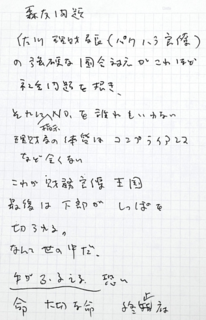 森友問題
佐川 理財局長(パワハラ官僚)
の強硬な国会対応がこれほが
社会問題を招き、
それにNO、を誰れもいわない
理財局の体質はコンプライアンス
など全くない
これが財務官僚王国
最後は下部がしっぽを
切られる。
なんて世の中だ、
手がふるえる 恐い
命 大切な命 終止符